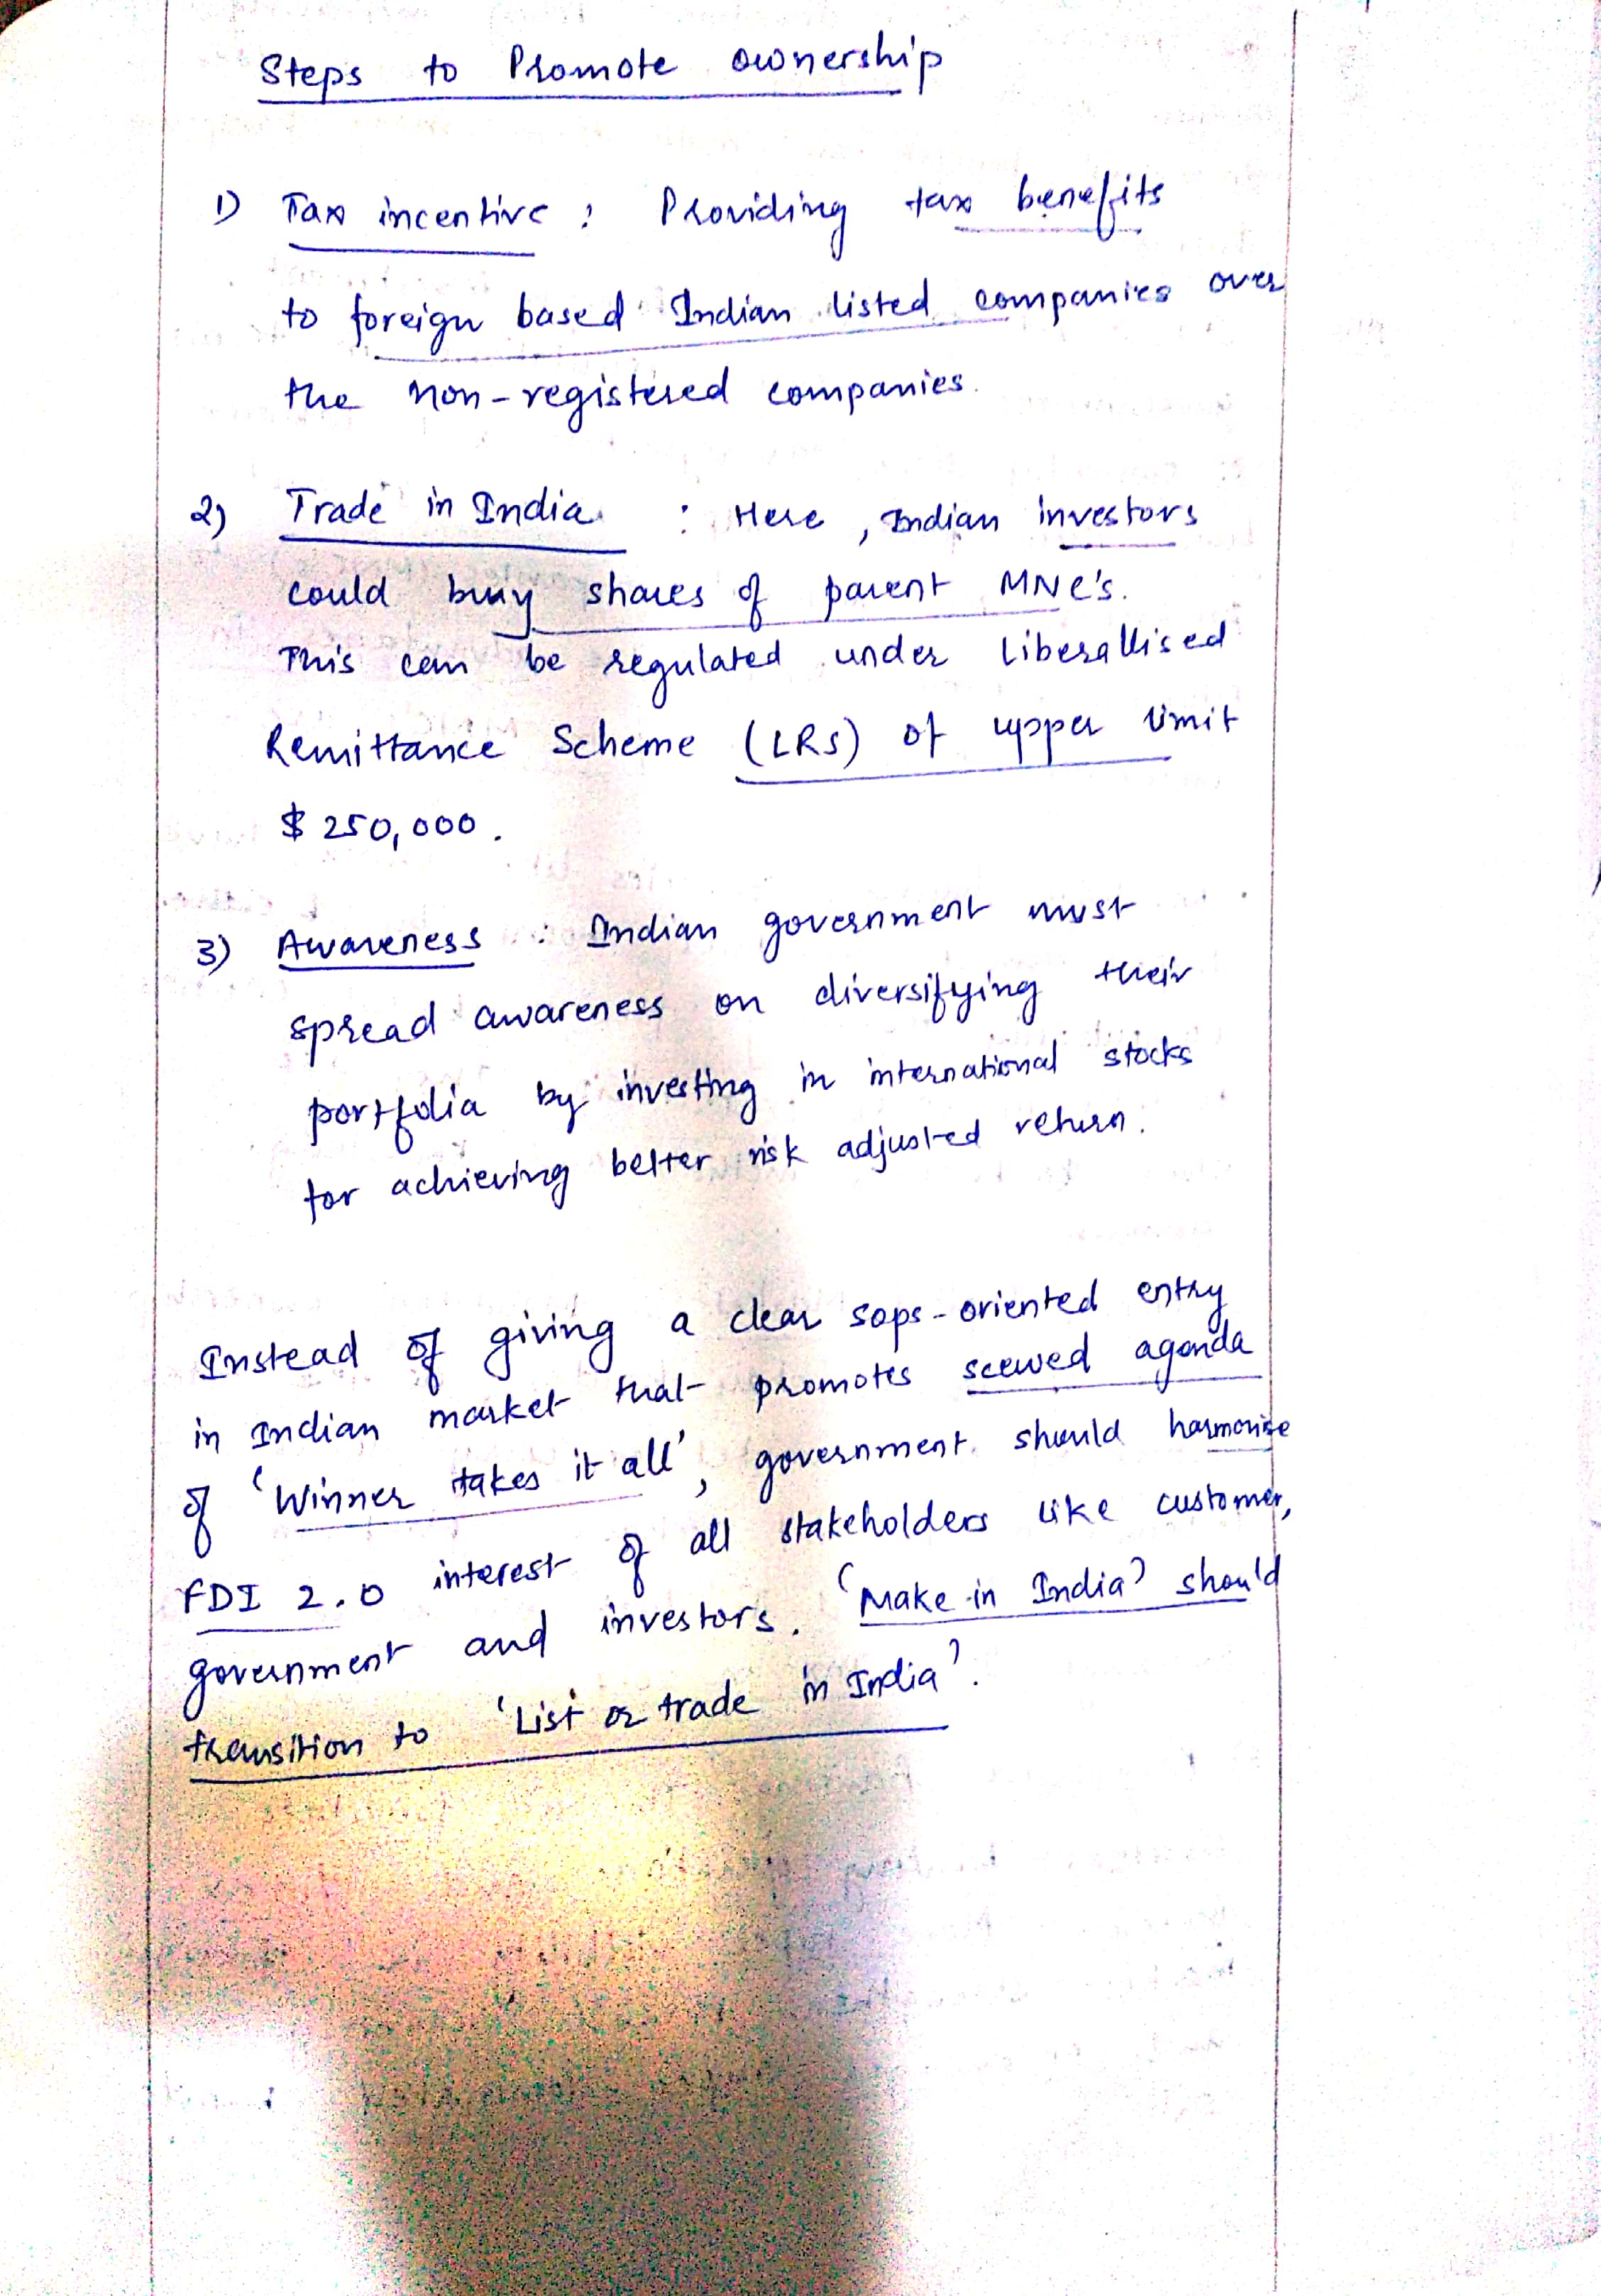 Steps to Promote ownership
1) Tax incentive : Providing tax benefits
to foreign based Indian listed companies over
the non-registered companies.
2) Trade in India : Here , Indian investors
could buy shares of parent MNC's.
This can be regulated under Liberallised
Remittance Scheme (LRS) of upper limit
$ 250,000 .
3) Awareness : Indian government must
spread awareness on diversifying their
portfolia by investing in international stocks
for achieving better risk adjusted return.
Instead of giving a clear sops-oriented entry
in Indian market that promotes scewed agenda
of 'Winner takes it all', government should harmonise
FDI 2.0 interest of all stakeholders like customer,
government and investors. 'Make in India' should
transition to 'List or trade in India'.